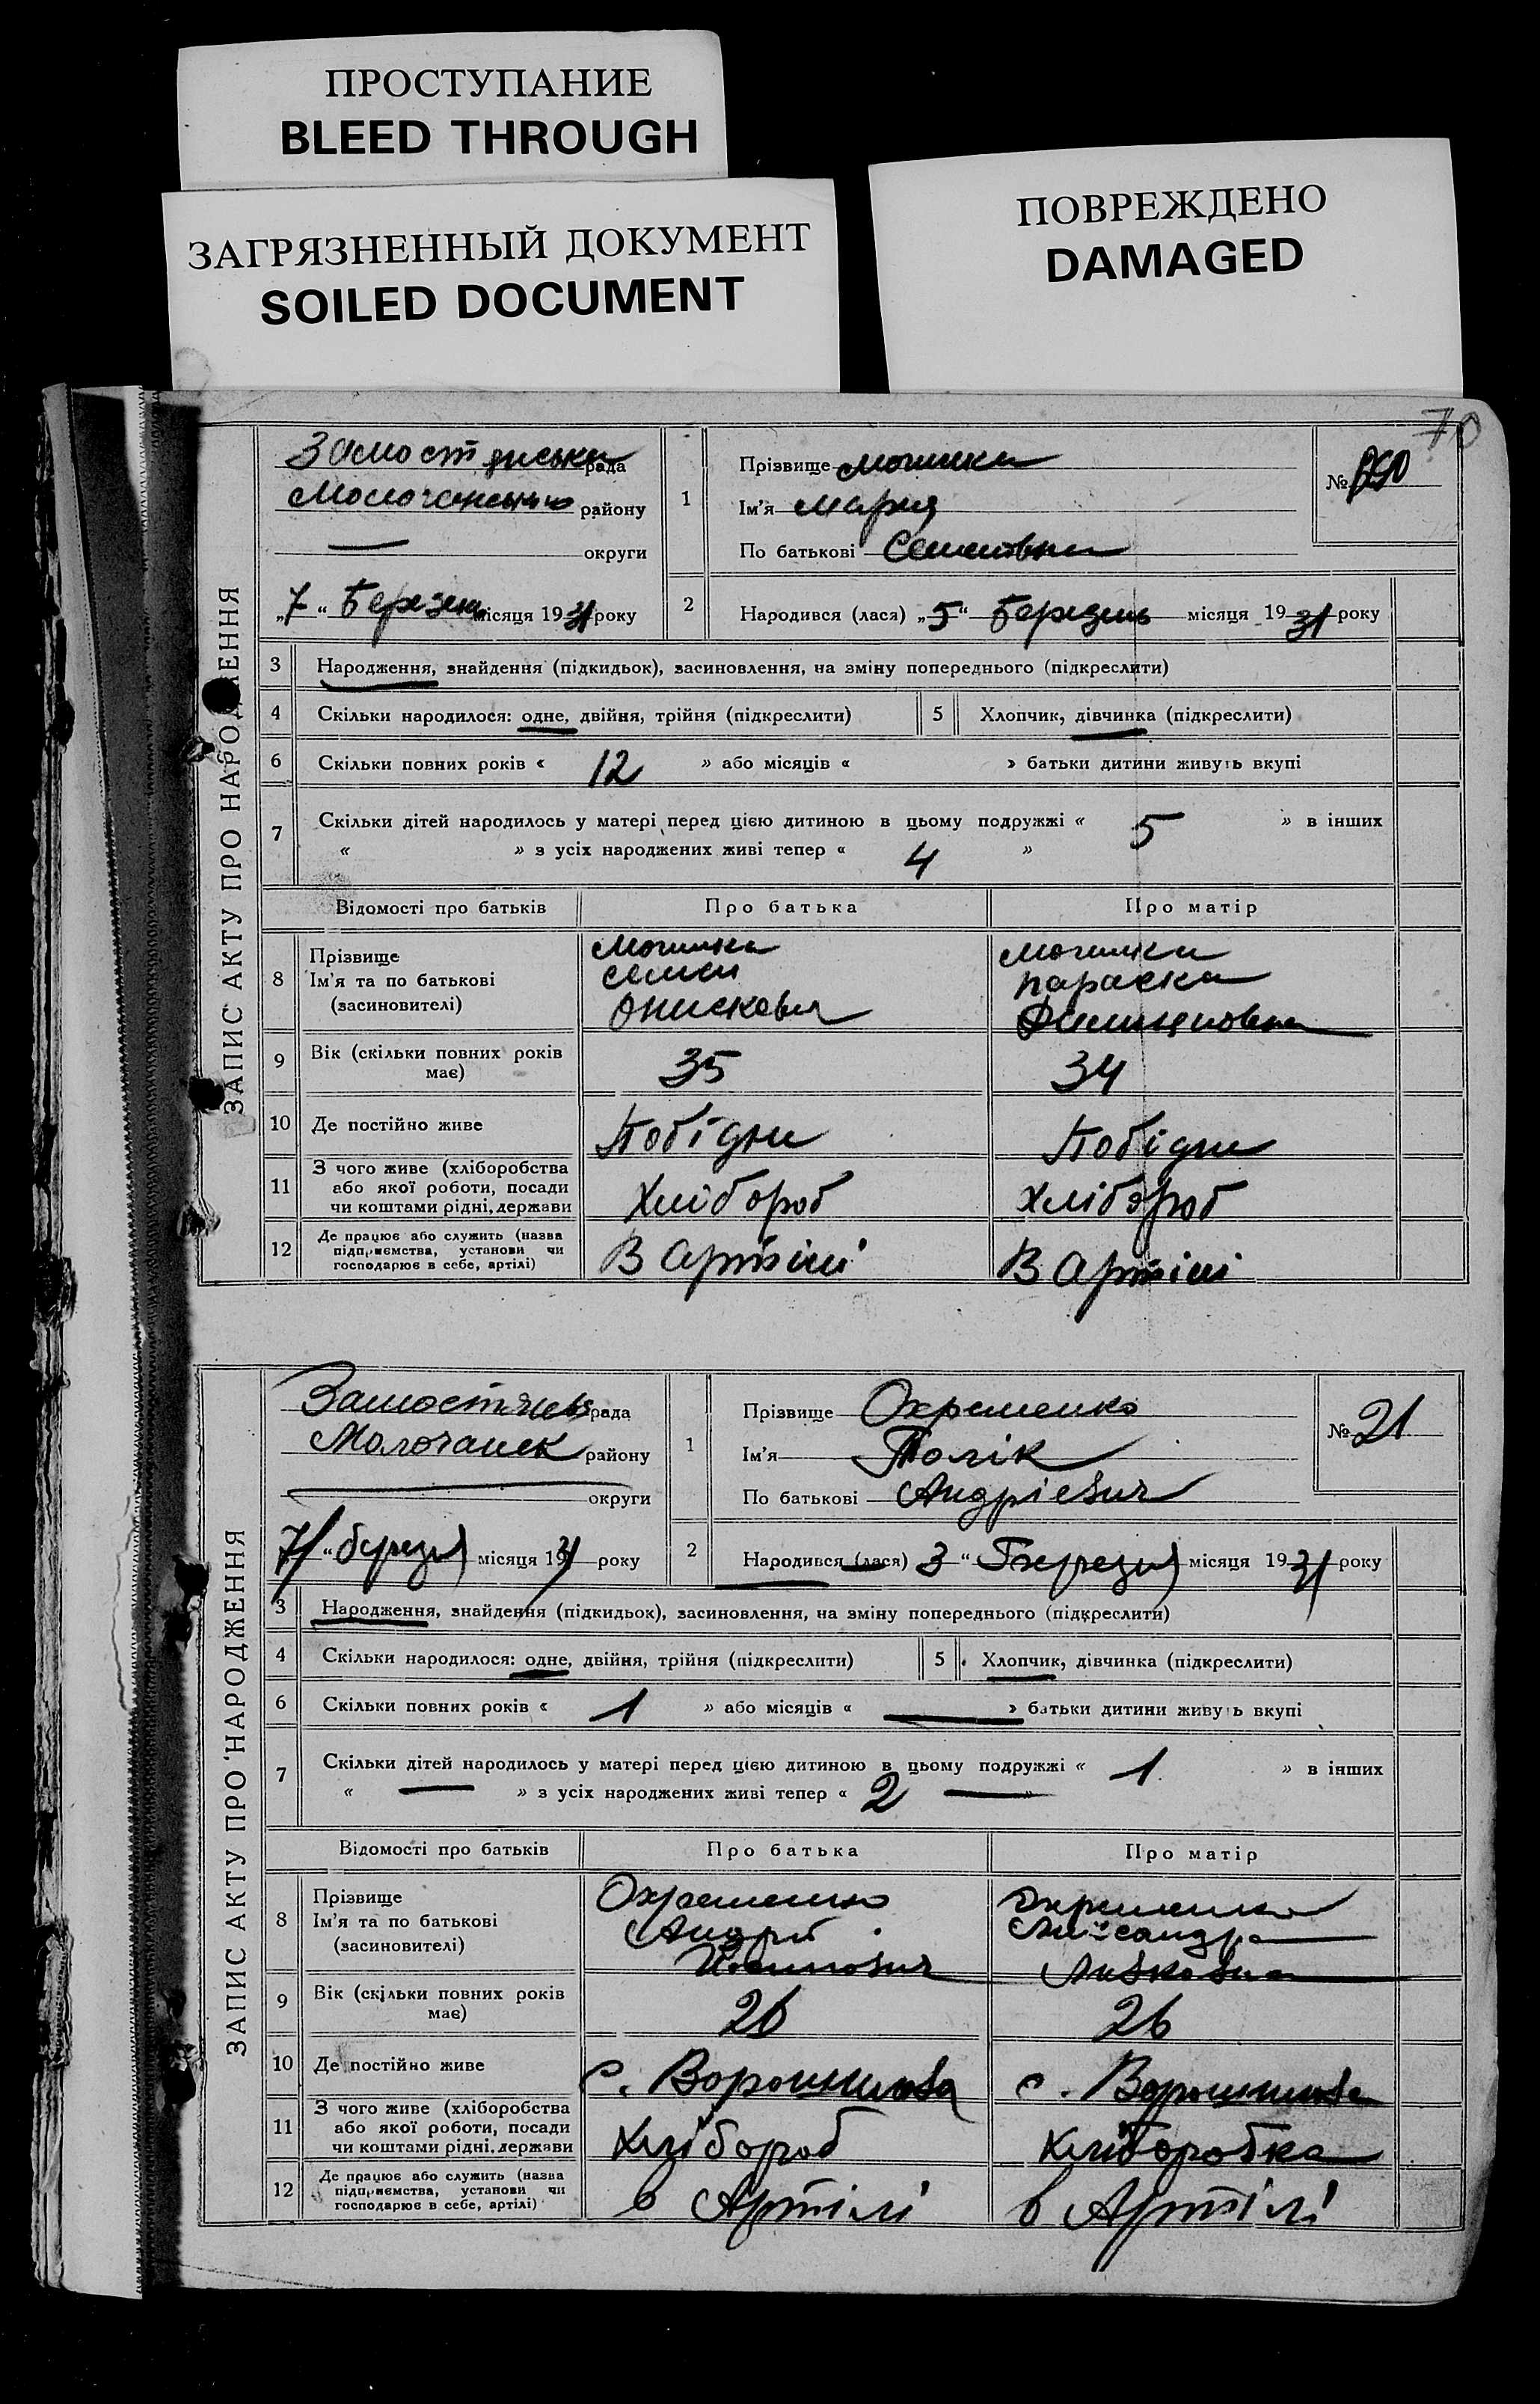 ПРОСТУПАНИЕ
BLEED THROUGH
ЗАГРЯЗНЕННЫЙ ДОКУМЕНТ
SOILED DOCUMENT
ПОВРЕЖДЕНО
DAMAGED
70
ЗАПИС АКТУ ПРО НАРОДЖЕННЯ
рада
району
округи
„7“ Березень місяця 1931 року
1
Прізвище
Ім'я Мария
По батькові
№
2
Народився (лася) „5“ Березень місяця 1931 року
3 Народження, знайдення (підкидьок), засиновлення, на зміну попереднього (підкреслити)
4 Скільки народилося: одне, двійня, трійня (підкреслити) 5 Хлопчик, дівчинка (підкреслити)
6 Скільки повних років « 12 » або місяців « » батьки дитини живуть вкупі
7 Скільки дітей народилось у матері перед цією дитиною в цьому подружжі « 5 » в інших
« » з усіх народжених живі тепер « 4 »
Відомості про батьків Про батька Про матір
8 Прізвище
Ім'я та по батькові
(засиновителі)
Семен
Параска
9 Вік (скільки повних років має) 35 34
10 Де постійно живе Побідни Побідни
11 З чого живе (хліборобства або якої роботи, посади чи коштами рідні, держави Хлібороб Хлібороб
12 Де працює або служить (назва підприємства, установи чи господарює в себе, артілі) В Артілі В Артілі
ЗАПИС АКТУ ПРО НАРОДЖЕННЯ
рада
Молочанск району
округи
7 “ березня місяця 1931 року
1
Прізвище Охременко
Ім'я Толік
По батькові Андрієвич
№ 21
2
Народився (лася) 3 “ Березня місяця 1931 року
3 Народження, знайдення (підкидьок), засиновлення, на зміну попереднього (підкреслити)
4 Скільки народилося: одне, двійня, трійня (підкреслити) 5 Хлопчик, дівчинка (підкреслити)
6 Скільки повних років « 1 » або місяців « — » батьки дитини живуть вкупі
7 Скільки дітей народилось у матері перед цією дитиною в цьому подружжі « 1 » в інших
« — » з усіх народжених живі тепер « 2 — »
Відомості про батьків Про батька Про матір
8 Прізвище Охременко Охременко
Ім'я та по батькові Андрій
(засиновителі)
9 Вік (скільки повних років має) 26 26
10 Де постійно живе с. Ворошилова с. Ворошилова
11 З чого живе (хліборобства або якої роботи, посади чи коштами рідні, держави Хлібороб Хліборобка
12 Де працює або служить (назва підприємства, установи чи господарює в себе, артілі) в Артілі в Артілі